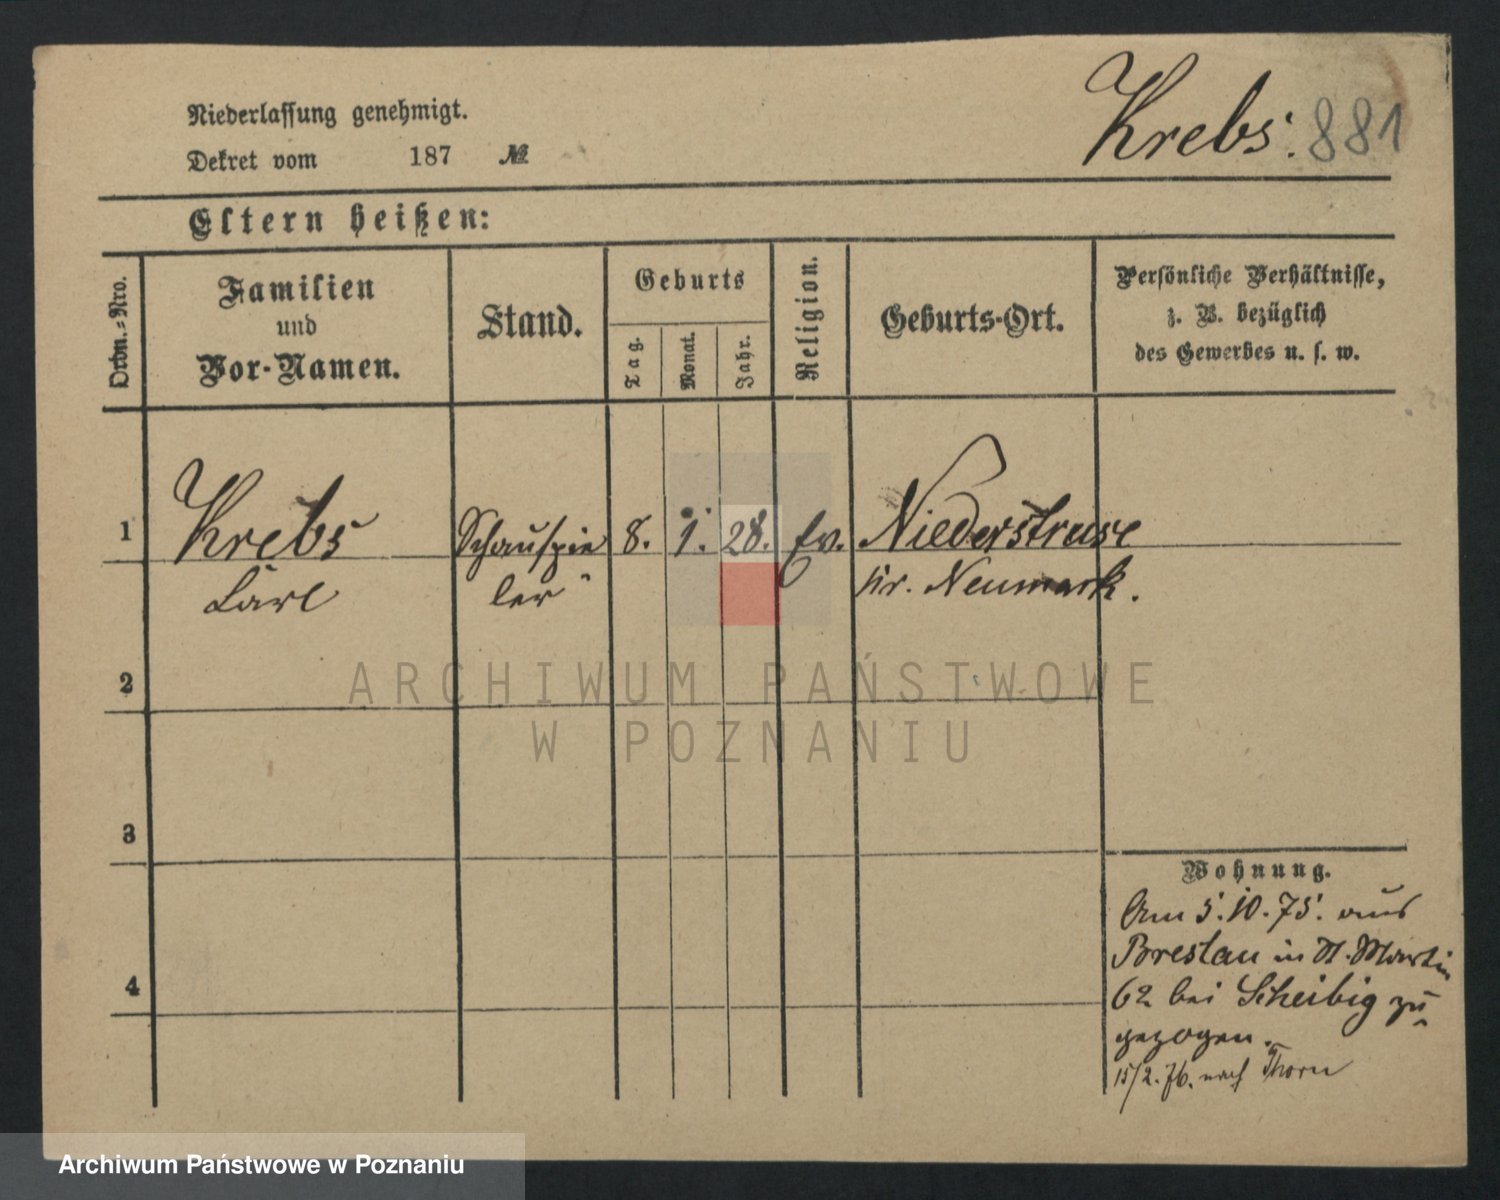 Niederlassung genehmigt.
Dekret vom 187 №
Krebs. 881
Eltern heißen:
Ordn.=Nro.
Familien
und
Vor-Namen.
Stand.
Geburts
Tag.
Monat.
Jahr.
Religion.
Geburts-Ort.
Persönliche Verhältnisse,
z. B. bezüglich
des Gewerbes u. s. w.
1 Krebs Schauspie 8. 1. 28. Ev. Niederstruse
Carl ler Kr. Neumark.
2
3
4
ARCHIWUM PAŃSTWOWE
W POZNANIU
Wohnung.
Am 5.10.75. aus
Breslau in St. Martin
62 bei Scheibig zu
gezogen.
15/2.76. nach Thorn
Archiwum Państwowe w Poznaniu